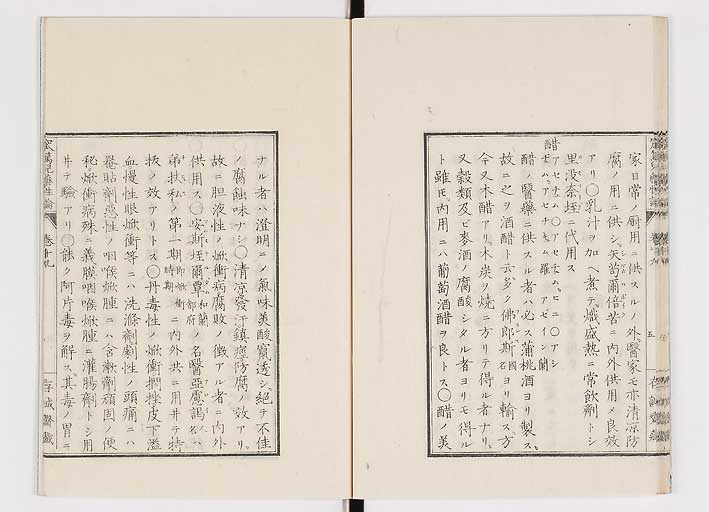 家日常ノ厨用ニ供スルノ外、醫家モ亦清凉防
腐ノ用ニ供シ、矢苟爾倍苦ニ内外供用〆良效
アリ〇乳汁ヲ加ヘ煮テ、熾盛熱ニ常飲劑トシ
里没奈垤ニ代用ス
醋
醋ノ醫藥ニ供スル者ハ必ス蒲桃酒ヨリ製ス、
故ニ之ヲ酒醋ト云多ク佛郎斯國名ヨリ輸ス、方
今又木醋アリ木炭ヲ燒ニ方リテ得ル者ナリ、
又穀類及ビ麥酒ノ腐酸シタル者ヨリモ得ル
ト雖モ、内用ニハ葡萄酒醋ヲ良トス〇醋ノ美
ナル者ハ澄明ニ〆氣味美酸竄透シ、絶テ不佳
ノ腐蝕味ナシ〇清凉發汗鎮痙防腐ノ效アリ。
故ニ胆液性ノ焮衝病腐敗ノ徴アル者ニ内外
供用ス〇安斯垤爾覃和蘭都府ノ名醫亞慮謁名ハ
弟扶私ノ第一期即焮衝時期ニ内外共ニ用井テ特
抜ノ效アリトス〇丹毒性ノ焮衝擱挫皮下濫
血慢性眼焮衝等ニハ洗滌劑劇性ノ頭痛ニハ
罨貼劑悪性ノ咽喉焮腫ニハ含漱劑頑固ノ便
秘焮衝病殊ニ義膜咽喉焮腫ニ灌腸劑トシ用
井テ驗アリ〇能ク阿片毒ヲ解ス、其毒ノ胃ニ